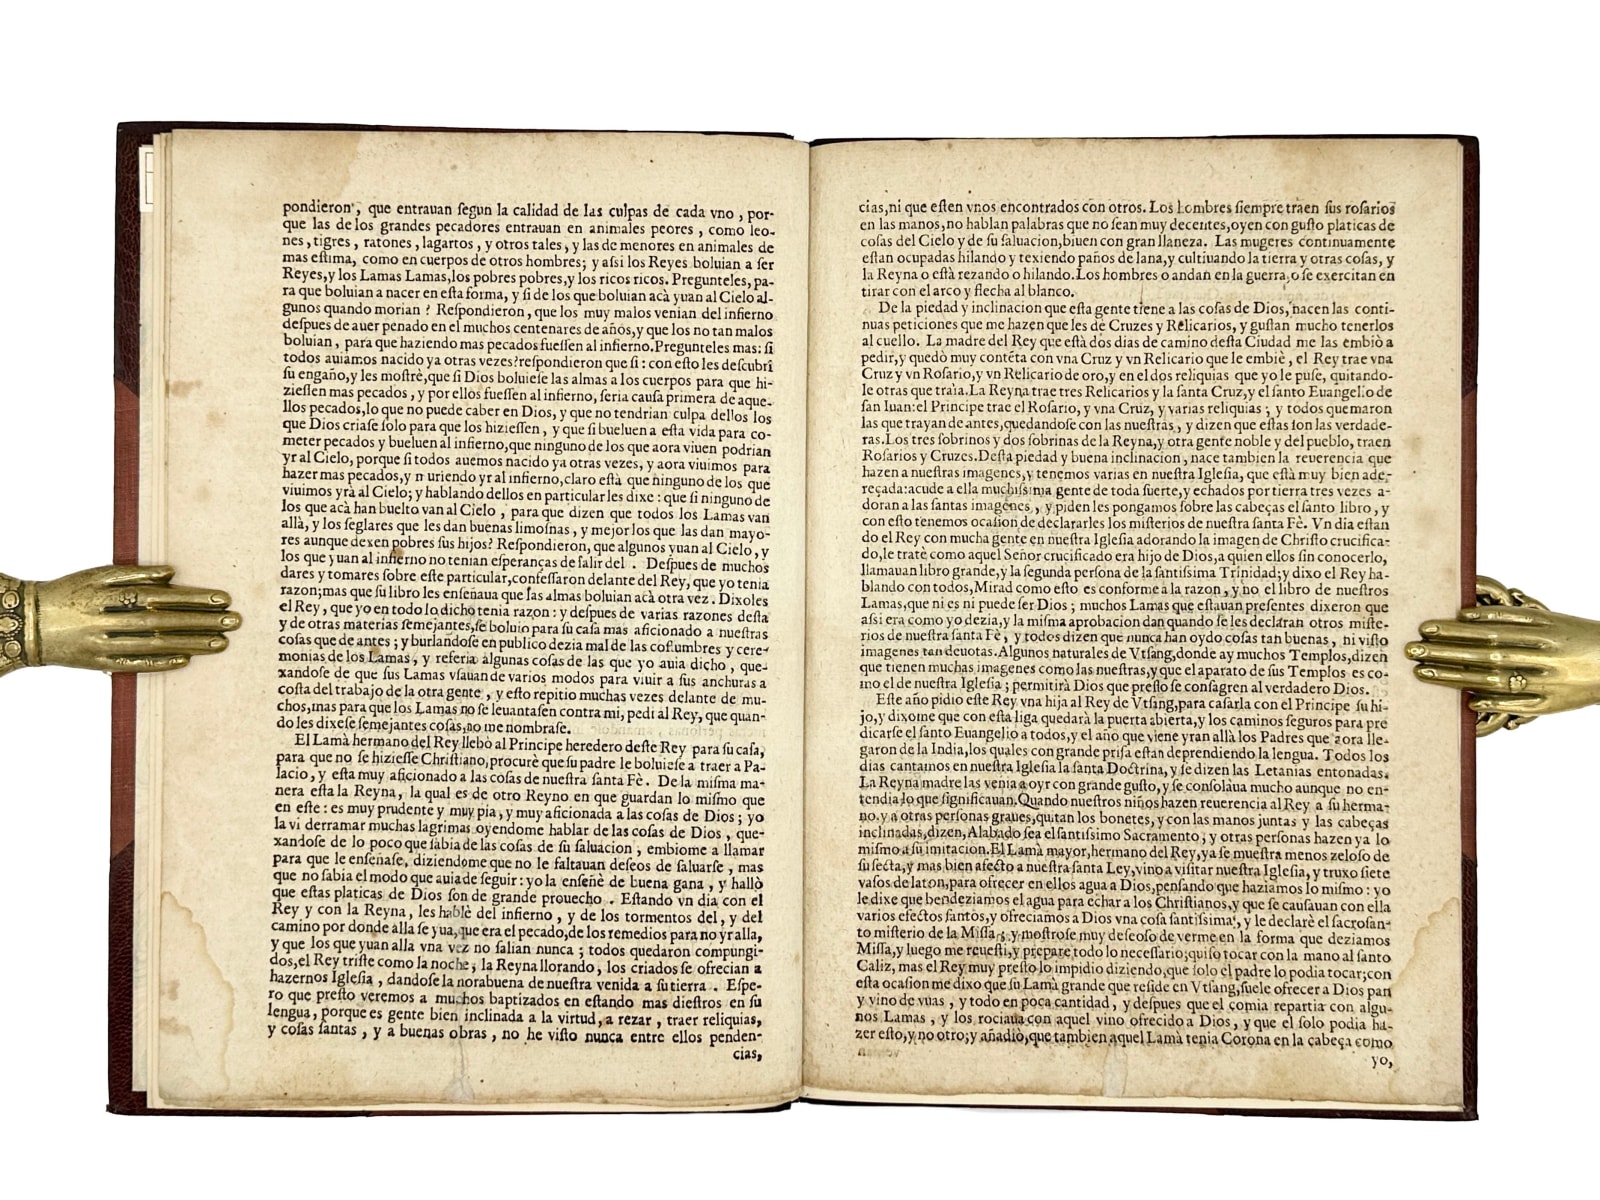 pondieron, que entrauan ſegun la calidad de las culpas de cada vno , por-
que las de los grandes pecadores entrauan en animales peores , como leo-
nes, tigres , ratones , lagartos , y otros tales , y las de menores en animales de
mas eſtima, como en cuerpos de otros hombres; y aſsi los Reyes boluian a ſer
Reyes,y los Lamas Lamas,los pobres pobres,y los ricos ricos. Pregunteles, pa-
ra que boluian a nacer en eſta forma, y ſi de los que boluian acà yuan al Cielo al-
gunos quando morian ? Reſpondieron, que los muy malos venian del infierno
deſpues de auer penado en el muchos centenares de años,y que los no tan malos
boluian , para que haziendo mas pecados fueſſen al infierno.Pregunteles mas: ſi
todos auiamos nacido ya otras vezes?reſpondieron que ſi : con eſto les deſcubrì
ſu engaño,y les moſtrè,que ſi Dios boluieſe las almas a los cuerpos para que hi-
zieſſen mas pecados , y por ellos fueſſen al infierno, ſeria cauſa primera de aque-
llos pecados,lo que no puede caber en Dios, y que no tendrian culpa dellos los
que Dios criaſe ſolo para que los hizieſſen , y que ſi bueluen a eſta vida para co-
meter pecados y bueluen al infierno,que ninguno de los que aora viuen podrian
yr al Cielo, porque ſi todos auemos nacido ya otras vezes, y aora viuimos para
hazer mas pecados,y muriendo yr al infierno,claro eſtà que ninguno de los que
viuimos yrà al Cielo; y hablando dellos en particular les dixe : que ſi ninguno de
los que acà han buelto van al Cielo , para que dizen que todos los Lamas van
allà, y los ſeglares que les dan buenas limoſnas , y mejor los que las dan mayo-
res aunque dexen pobres ſus hijos? Reſpondieron, que algunos yuan al Cielo , y
los que yuan al infierno no tenian eſperanças de ſalir del . Deſpues de muchos
dares y tomares ſobre eſte particular,confeſſaron delante del Rey, que yo tenia
razon;mas que ſu libro les enſeñaua que las almas boluian acà otra vez . Dixoles
el Rey , que yo en todo lo dicho tenia razon : y deſpues de varias razones deſta
y de otras materias ſemejantes,ſe boluio para ſu caſa mas aficionado a nueſtras
coſas que de antes ; y burlandoſe en publico dezia mal de las coſtumbres y cere-
monias de los Lamas , y referia algunas coſas de las que yo auia dicho , que-
xandoſe de que ſus Lamas vſauan de varios modos para viuir a ſus anchuras a
coſta del trabajo de la otra gente , y eſto repitio muchas vezes delante de mu-
chos,mas para que los Lamas no ſe leuantaſen contra mi, pedi al Rey, que quan-
do les dixeſe ſemejantes coſas,no me nombraſe.
El Lamà hermano del Rey llebò al Principe heredero deſte Rey para ſu caſa,
para que no ſe hizieſſe Chriſtiano,procurè que ſu padre le boluieſe a traer a Pa-
lacio, y eſta muy aficionado a las coſas de nueſtra ſanta Fè. De la miſma ma-
nera eſta la Reyna, la qual es de otro Reyno en que guardan lo miſmo que
en eſte : es muy prudente y muy pia , y muy aficionada a las coſas de Dios ; yo
la vi derramar muchas lagrimas oyendome hablar de las coſas de Dios , que-
xandoſe de lo poco que ſabia de las coſas de ſu ſaluacion , embiome a llamar
para que le enſeñaſe, diziendome que no le faltauan deſeos de ſaluarſe , mas
que no ſabia el modo que auia de ſeguir : yo la enſeñè de buena gana , y hallò
que eſtas platicas de Dios ſon de grande prouecho . Eſtando vn dia con el
Rey y con la Reyna, les hablè del infierno , y de los tormentos del , y del
camino por donde alla ſe yua,que era el pecado,de los remedios para no yr alla,
y que los que yuan alla vna vez no ſalian nunca ; todos quedaron compungi-
dos,el Rey triſte como la noche, la Reyna llorando , los criados ſe ofrecian a
hazernos Igleſia , dandoſe la norabuena de nueſtra venida a ſu tierra . Eſpe-
ro que preſto veremos a muchos baptizados en eſtando mas dieſtros en ſu
lengua, porque es gente bien inclinada a la virtud, a rezar , traer reliquias,
y coſas ſantas , y a buenas obras , no he viſto nunca entre ellos penden-
cias,
cias,ni que eſten vnos encontrados con otros. Los hombres ſiempre traen ſus roſarios
en las manos,no hablan palabras que no ſean muy decentes,oyen con guſto platicas de
coſas del Cielo y de ſu ſaluacion,biuen con gran llaneza. Las mugeres continuamente
eſtan ocupadas hilando y texiendo paños de lana,y cultiuando la tierra y otras coſas, y
la Reyna o eſtà rezando o hilando.Los hombres o andan en la guerra,o ſe exercitan en
tirar con el arco y flecha al blanco.
De la piedad y inclinacion que eſta gente tiene a las coſas de Dios, nacen las conti-
nuas peticiones que me hazen que les de Cruzes y Relicarios, y guſtan mucho tenerlos
al cuello. La madre del Rey que eſtà dos dias de camino deſta Ciudad me las embiò a
pedir,y quedò muy contẽta con vna Cruz y vn Relicario que le embiè , el Rey trae vna
Cruz y vn Roſario,y vn Relicario de oro,y en el dos reliquias que yo le puſe, quitando-
le otras que traìa.La Reyna trae tres Relicarios y la ſanta Cruz,y el ſanto Euangelio de
ſan Iuan:el Principe trae el Roſario, y vna Cruz, y varias reliquias ; y todos quemaron
las que trayan de antes,quedandoſe con las nueſtras , y dizen que eſtas ſon las verdade-
ras.Los tres ſobrinos y dos ſobrinas de la Reyna,y otra gente noble y del pueblo, traen
Roſarios y Cruzes.Deſta piedad y buena inclinacion , nace tambien la reuerencia que
hazen a nueſtras imagenes,y tenemos varias en nueſtra Igleſia, que eſtà muy bien ade-
reçada:acude a ella muchiſsima gente de toda ſuerte,y echados por tierra tres vezes a-
doran a las ſantas imagènes , y piden les pongamos ſobre las cabeças el ſanto libro , y
con eſto tenemos ocaſion de declararles los miſterios de nueſtra ſanta Fè. Vn dia eſtan
do el Rey con mucha gente en nueſtra Igleſia adorando la imagen de Chriſto crucifica-
do,le tratè como aquel Señor crucificado era hijo de Dios,a quien ellos ſin conocerlo,
llamauan libro grande,y la ſegunda perſona de la ſantiſsima Trinidad;y dixo el Rey ha-
blando con todos,Mirad como eſto es conforme a la razon , y no el libro de nueſtros
Lamas,que ni es ni puede ſer Dios ; muchos Lamas que eſtauan preſentes dixeron que
aſsi era como yo dezia,y la miſma aprobacion dan quando ſe les declaran otros miſte-
rios de nueſtra ſanta Fè , y todos dizen que nunca han oydo coſas tan buenas , ni viſto
imagenes tan deuotas.Algunos naturales de Vtſang,donde ay muchos Templos,dizen
que tienen muchas imagenes como las nueſtras,y que el aparato de ſus Templos es co-
mo el de nueſtra Igleſia ; permitirà Dios que preſto ſe conſagren al verdadero Dios.
Eſte año pidio eſte Rey vna hija al Rey de Vtſang,para caſarla con el Principe ſu hi-
jo,y dixome que con eſta liga quedarà la puerta abierta,y los caminos ſeguros para pre
dicarſe el ſanto Euangelio a todos,y el año que viene yran allà los Padres que aora lle-
garon de la India,los quales con grande priſa eſtan deprendiendo la lengua. Todos los
dias cantamos en nueſtra Igleſia la ſanta Doctrina, y ſe dizen las Letanias entonadas.
La Reyna madre las venia a oyr con grande guſto,y ſe conſolàua mucho aunque no en-
tendia lo que ſignificauan.Quando nueſtros niños hazen reuerencia al Rey a ſu herma-
no,y a otras perſonas graues,quitan los bonetes, y con las manos juntas y las cabeças
inclinadas,dizen,Alabado ſea el ſantiſsimo Sacramento ; y otras perſonas hazen ya lo
miſmo a ſu imitacion.El Lamà mayor,hermano del Rey,ya ſe mueſtra menos zeloſo de
ſu ſecta,y mas bien afecto a nueſtra ſanta Ley,vino a viſitar nueſtra Igleſia, y truxo ſiete
vaſos de laton,para ofrecer en ellos agua a Dios,penſando que haziamos lo miſmo : yo
le dixe que bendeziamos el agua para echar a los Chriſtianos,y que ſe cauſauan con ella
varios efectos ſantos,y ofreciamos a Dios vna coſa ſantiſsima, y le declarè el ſacroſan-
to miſterio de la Miſſa ; y moſtroſe muy deſeoſo de verme en la forma que deziamos
Miſſa,y luego me reueſti,y preparè todo lo neceſſario;quiſo tocar con la mano al ſanto
Caliz, mas el Rey muy preſto lo impidio diziendo,que ſolo el padre lo podia tocar;con
eſta ocaſion me dixo que ſu Lamà grande que reſide en Vtſang,ſuele ofrecer a Dios pan
y vino de vuas , y todo en poca cantidad , y deſpues que el comia repartia con algu-
nos Lamas , y los rociaua con aquel vino ofrecido a Dios , y que el ſolo podia ha-
zer eſto,y no otro;y añadiò,que tambien aquel Lamà tenia Corona en la cabeça como
yo,